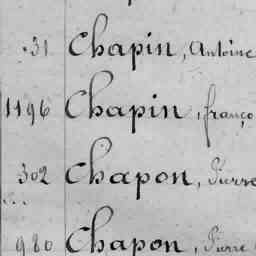 31 Chapin, Antoine
1196 Chapin, franço
302 Chapon, Pierre
980 Chapon, Pierre